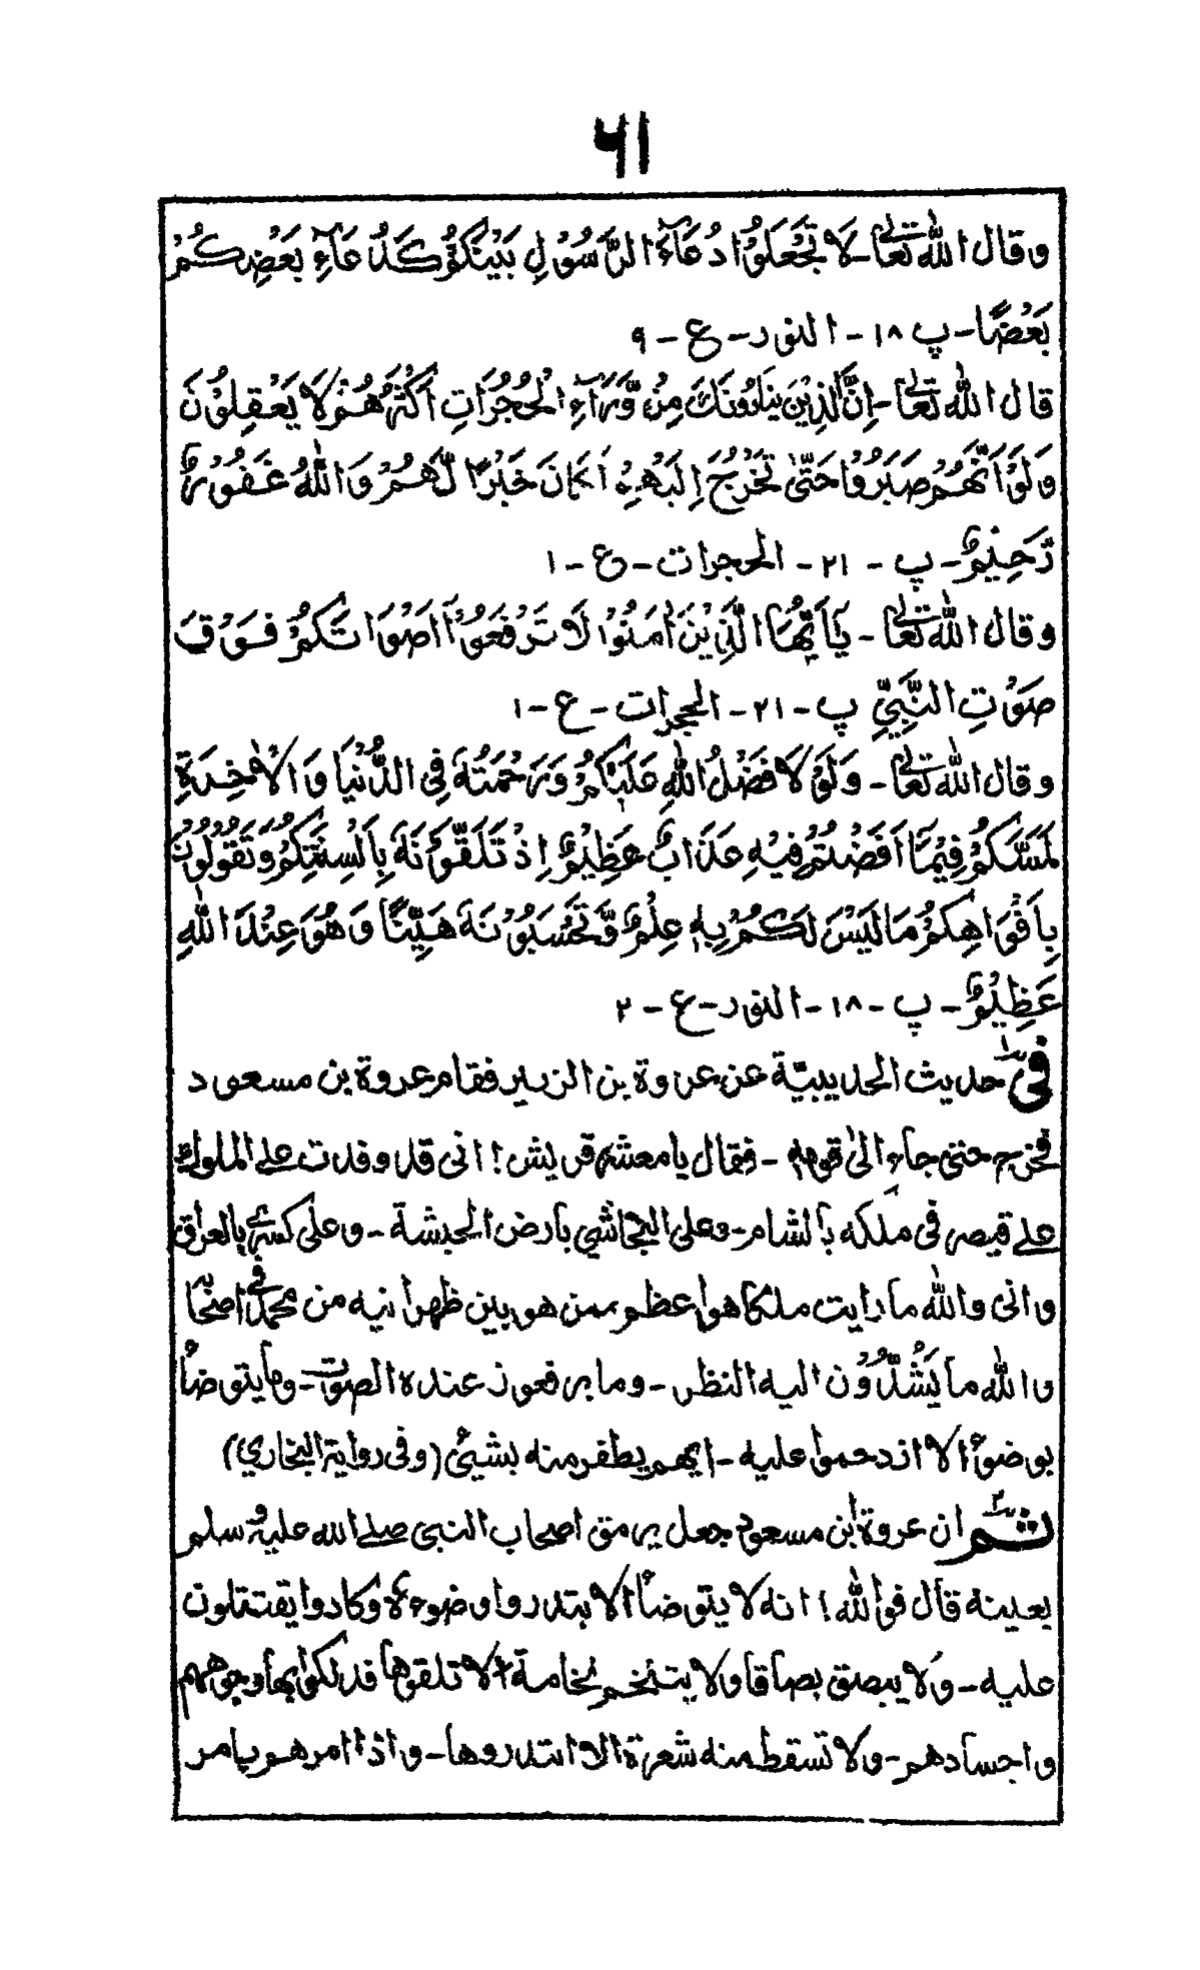 ۶۱
وقال الله تعالى - لَا تَجْعَلُوْا دُعَآءَ الرَّسُوْلِ بَيْنَكُمْ كَدُعَآءِ بَعْضِكُمْ
بَعْضًا - پ ۱۸ - النور - ع - ۹
قال الله تعالى - اِنَّ الَّذِيْنَ يُنَادُوْنَكَ مِنْ وَّرَآءِ الْحُجُرَاتِ اَكْثَرُهُمْ لَا يَعْقِلُوْنَ
وَلَوْ اَنَّهُمْ صَبَرُوْا حَتّٰى تَخْرُجَ اِلَيْهِمْ لَكَانَ خَيْرًا لَّهُمْ وَاللّٰهُ غَفُوْرٌ
رَّحِيْمٌ - پ - ۲۱ - الحجرات - ع - ۱
وقال الله تعالى - يَآ اَيُّهَا الَّذِيْنَ اٰمَنُوْا لَا تَرْفَعُوْآ اَصْوَاتَكُمْ فَوْقَ
صَوْتِ النَّبِيِّ پ - ۲۱ - الحجرات - ع - ۱
وقال الله تعالى - وَلَوْ لَا فَضْلُ اللّٰهِ عَلَيْكُمْ وَرَحْمَتُهٗ فِى الدُّنْيَا وَالْاٰخِرَةِ
لَمَسَّكُمْ فِيْمَآ اَفَضْتُمْ فِيْهِ عَذَابٌ عَظِيْمٌ اِذْ تَلَقَّوْنَهٗ بِاَلْسِنَتِكُمْ وَتَقُوْلُوْنَ
بِاَفْوَاهِكُمْ مَا لَيْسَ لَكُمْ بِهٖ عِلْمٌ وَّتَحْسَبُوْنَهٗ هَيِّنًا وَهُوَ عِنْدَ اللّٰهِ
عَظِيْمٌ - پ - ۱۸ - النور - ع - ۲
فى حديث الحديبيّة عن عروة بن الزبير فقام عروة بن مسعود
فخرج حتى جاء الى قومه - فقال يا معشر قريش! انى قد وفدت على الملوك
على قيصر فى ملكه بالشام - وعلى النجاشي بارض الحبشة - وعلى كسرى بالعراق
وانى والله ما رايت ملكا هو اعظم ممن هو بين ظهرانيه من محمد فى اصحابه
والله ما يَشُدُّوْن اليه النظر - وما يرفعون عنده الصوت - وما يتوضأ
بوضوء الا ازدحموا عليه - ايهم يظفر منه بشيئ (وفى رواية البخاري)
ثم ان عروة ابن مسعود جعل يرمق اصحاب النبى صلى الله عليه وسلم
بعينه قال فوالله! انه لا يتوضأ الا ابتدروا وضوءه وكادوا يقتتلون
عليه - ولا يبصق بصاقا ولا يتنخم نخامة الا تلقوها فدلكوا بها وجوههم
واجسادهم - ولا تسقط منه شعرة الا ابتدروها - واذا امرهم بامر